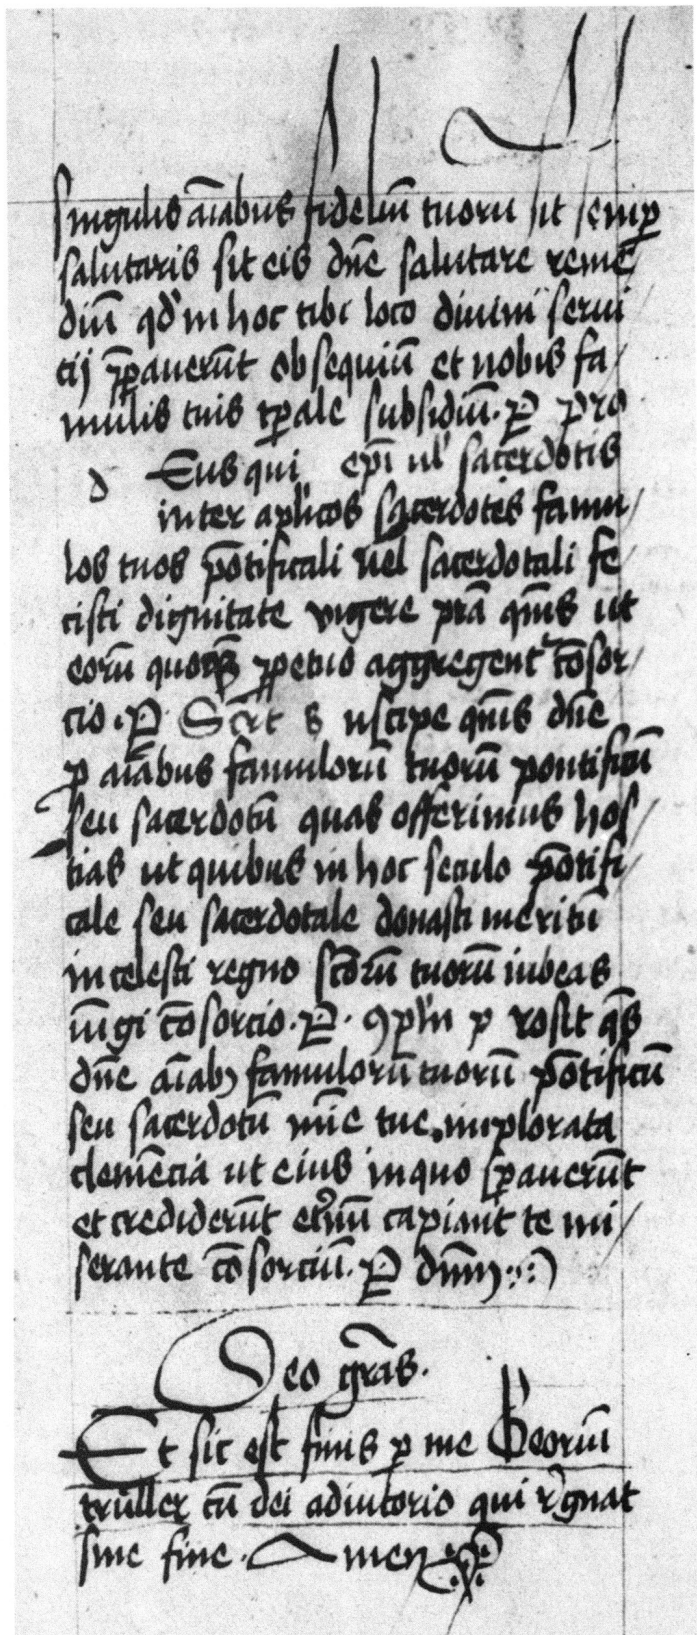 singulis aı̄abus fideliū tuorū sit semꝑ
salutaris sit eis dn̄e salutare reme
diū qd' in hoc tibi loco diuini serui
tij p̄pauerūt obsequiū et nobis fa
mulis tuis tꝑale subsidiū. P pro
d Eus qui ep̄i ul' sacerdotis
inter apl'icos sacerdotes famu
los tuos pōtificali uel sacerdotali fe
cisti dignitate vigere p̄ra qm̄s ut
eorū quoqȝ ꝑpetuo aggregent᷑ cōsor
cio. P Sēcret s uscipe qm̄s dn̄e
ꝓ aīabus famulorū tuorū pontificū
seu sacerdotū quas offerimus hos
tias ut quibus in hoc seculo pōtifi
cale seu sacerdotale donasti meritū
in celesti regno sc̄torū tuorū iubeas
iūgi cōsorcio. P. ꝯpl'in p rosit qs̄
dn̄e aīabꝫ famulorū tuorū pōtificū
seu sacerdotū mīe tue implorata
clemēcia ut eius in quo sꝑauerūt
et crediderūt et'nū capiant te mi
serante cōsorciū. P dn̄m
Deo gr̄as.
Et sic est finis ꝑ me Georiū
trüller cū dei adiutorio qui regnat
sine fine. Amen